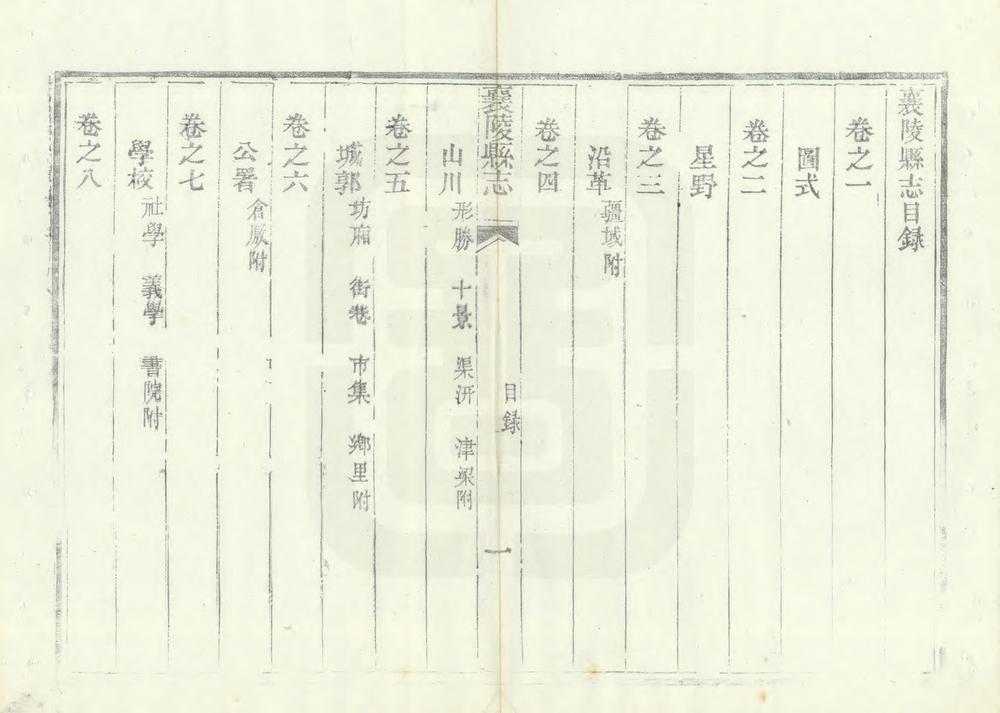 襄陵縣志目録
卷之一
圖式
卷之二
星野
卷之三
沿革 疆域附
卷之四
襄陵縣志 目録 一
山川 形勝 十景 渠汧 津梁附
卷之五
城郭 坊廂 街巷 市集 鄉里附
卷之六
公署 倉厫附
卷之七
學校 社學 義學 書院附
卷之八